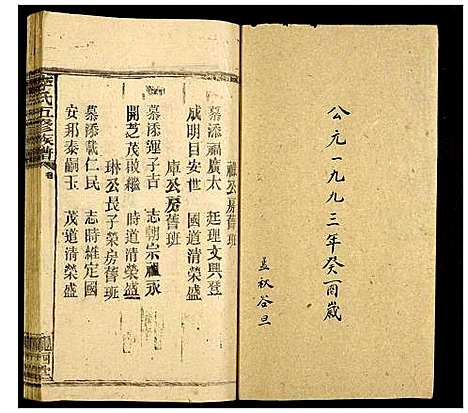 公元一九九三年癸酉歲
孟秋谷旦
福公房舊班
慕添福廣太 廷理文興登
咸明目安世 國道清榮盛
庫公房舊班
慕添運子吉 志朝宗福永
開芝茂啟繼 時道清榮盛
琳公長子榮房舊班
慕添載仁民 志時維定國
安邦泰嗣玉 茂道清榮盛
李氏五修族譜